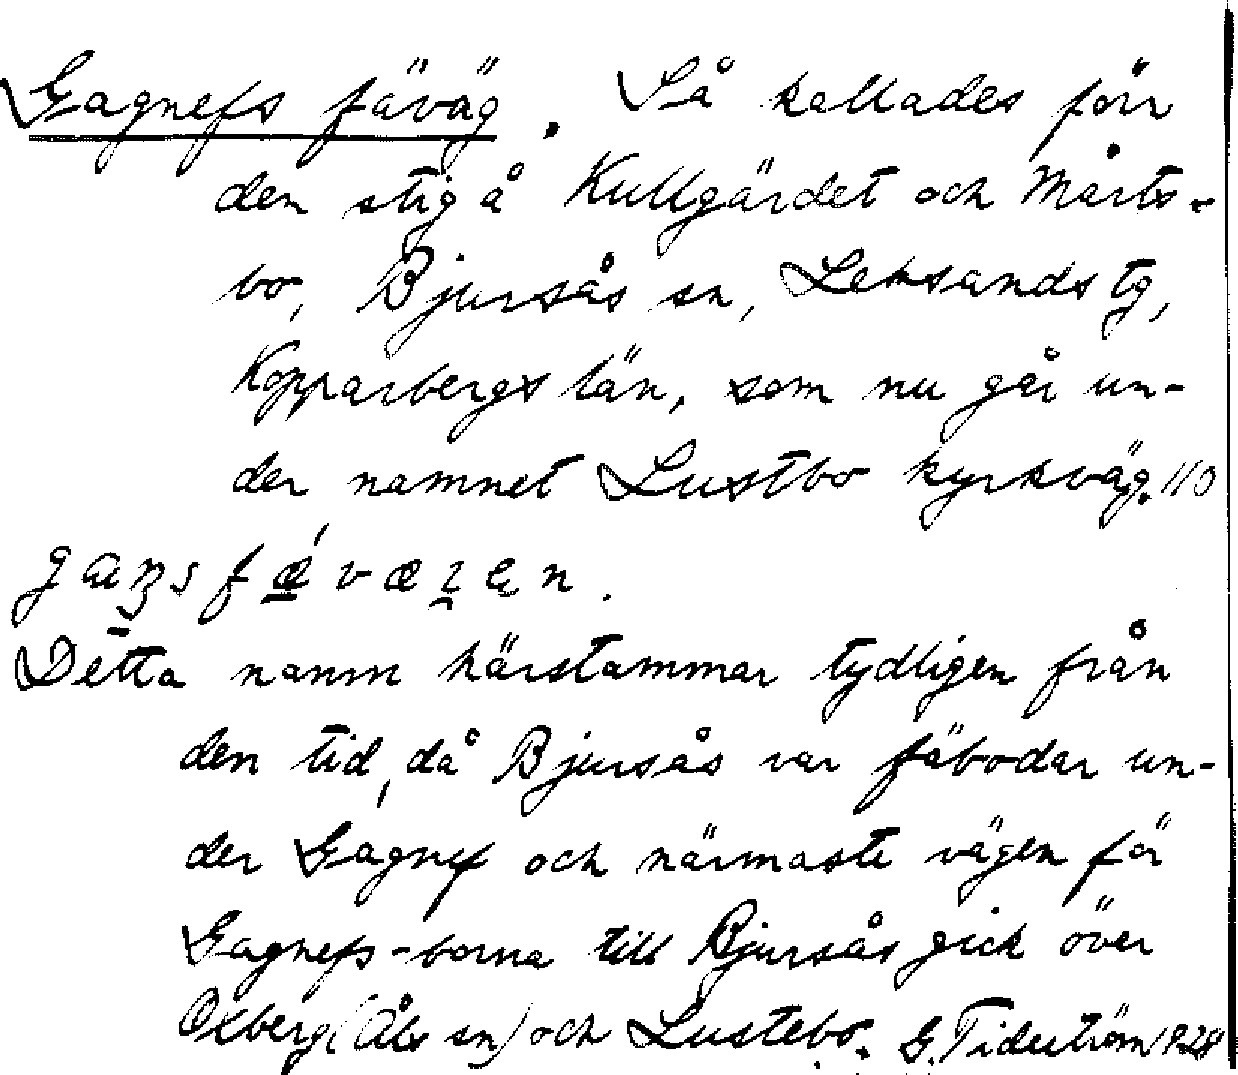 Gagnefs fäväg. Så kallades förr
den stig å Kullgärdet och Mårts-
bo, Bjursås sn, Leksands tg,
Kopparbergs län, som nu går un-
der namnet Lustbo kyrkväg. 110

Detta namn härstammar tydligen från
den tid, då Bjursås var fäbodar un-
der Gagnef och närmaste vägen för
Gagnefs-borna till Bjursås gick över
Oxberg (Åls sn) och Lustebo. G. Tideström 1928